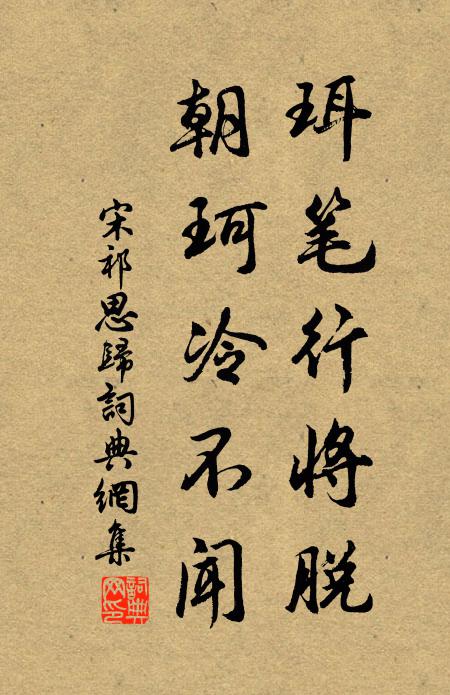 珥笔行将脱
朝珂冷不闻
宋祁思歸詞典網集
詞典网印